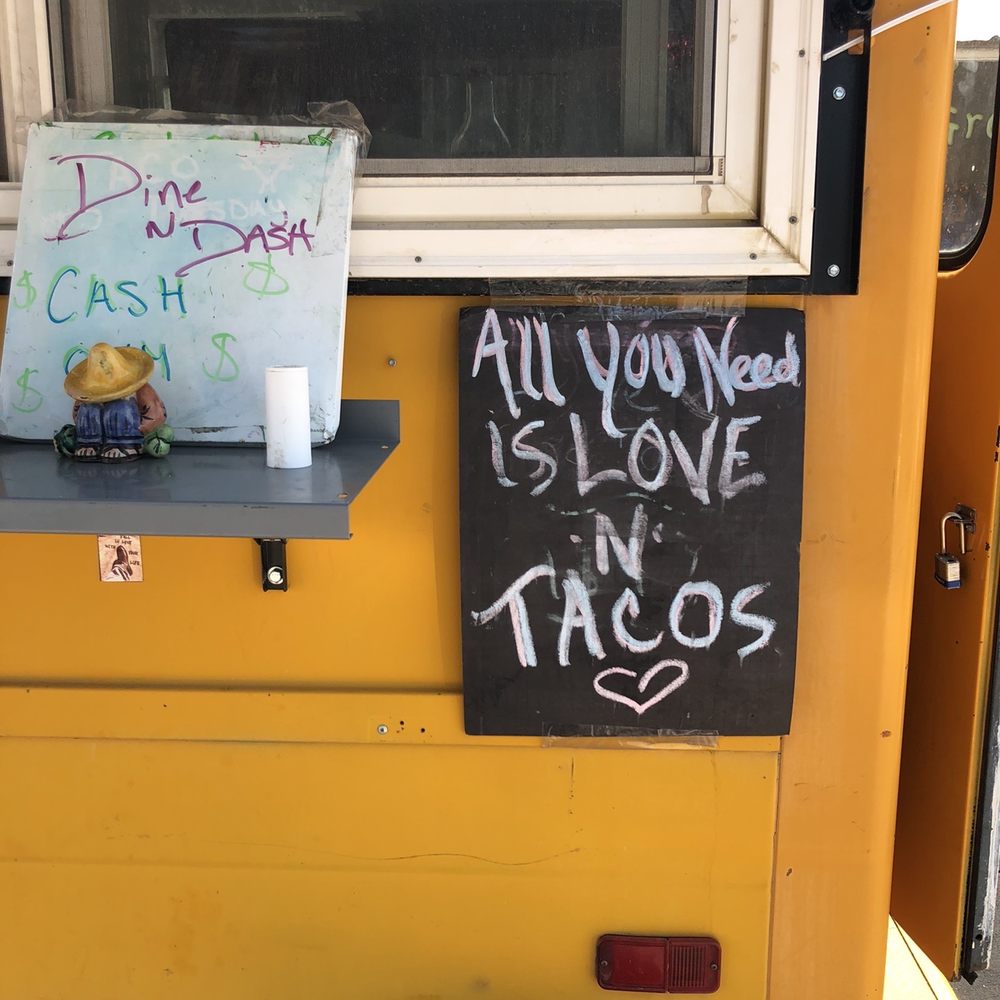 Dine
N DASH
$ CASH $
$ $
All You Need
IS LOVE
N'
TACOS
Gr